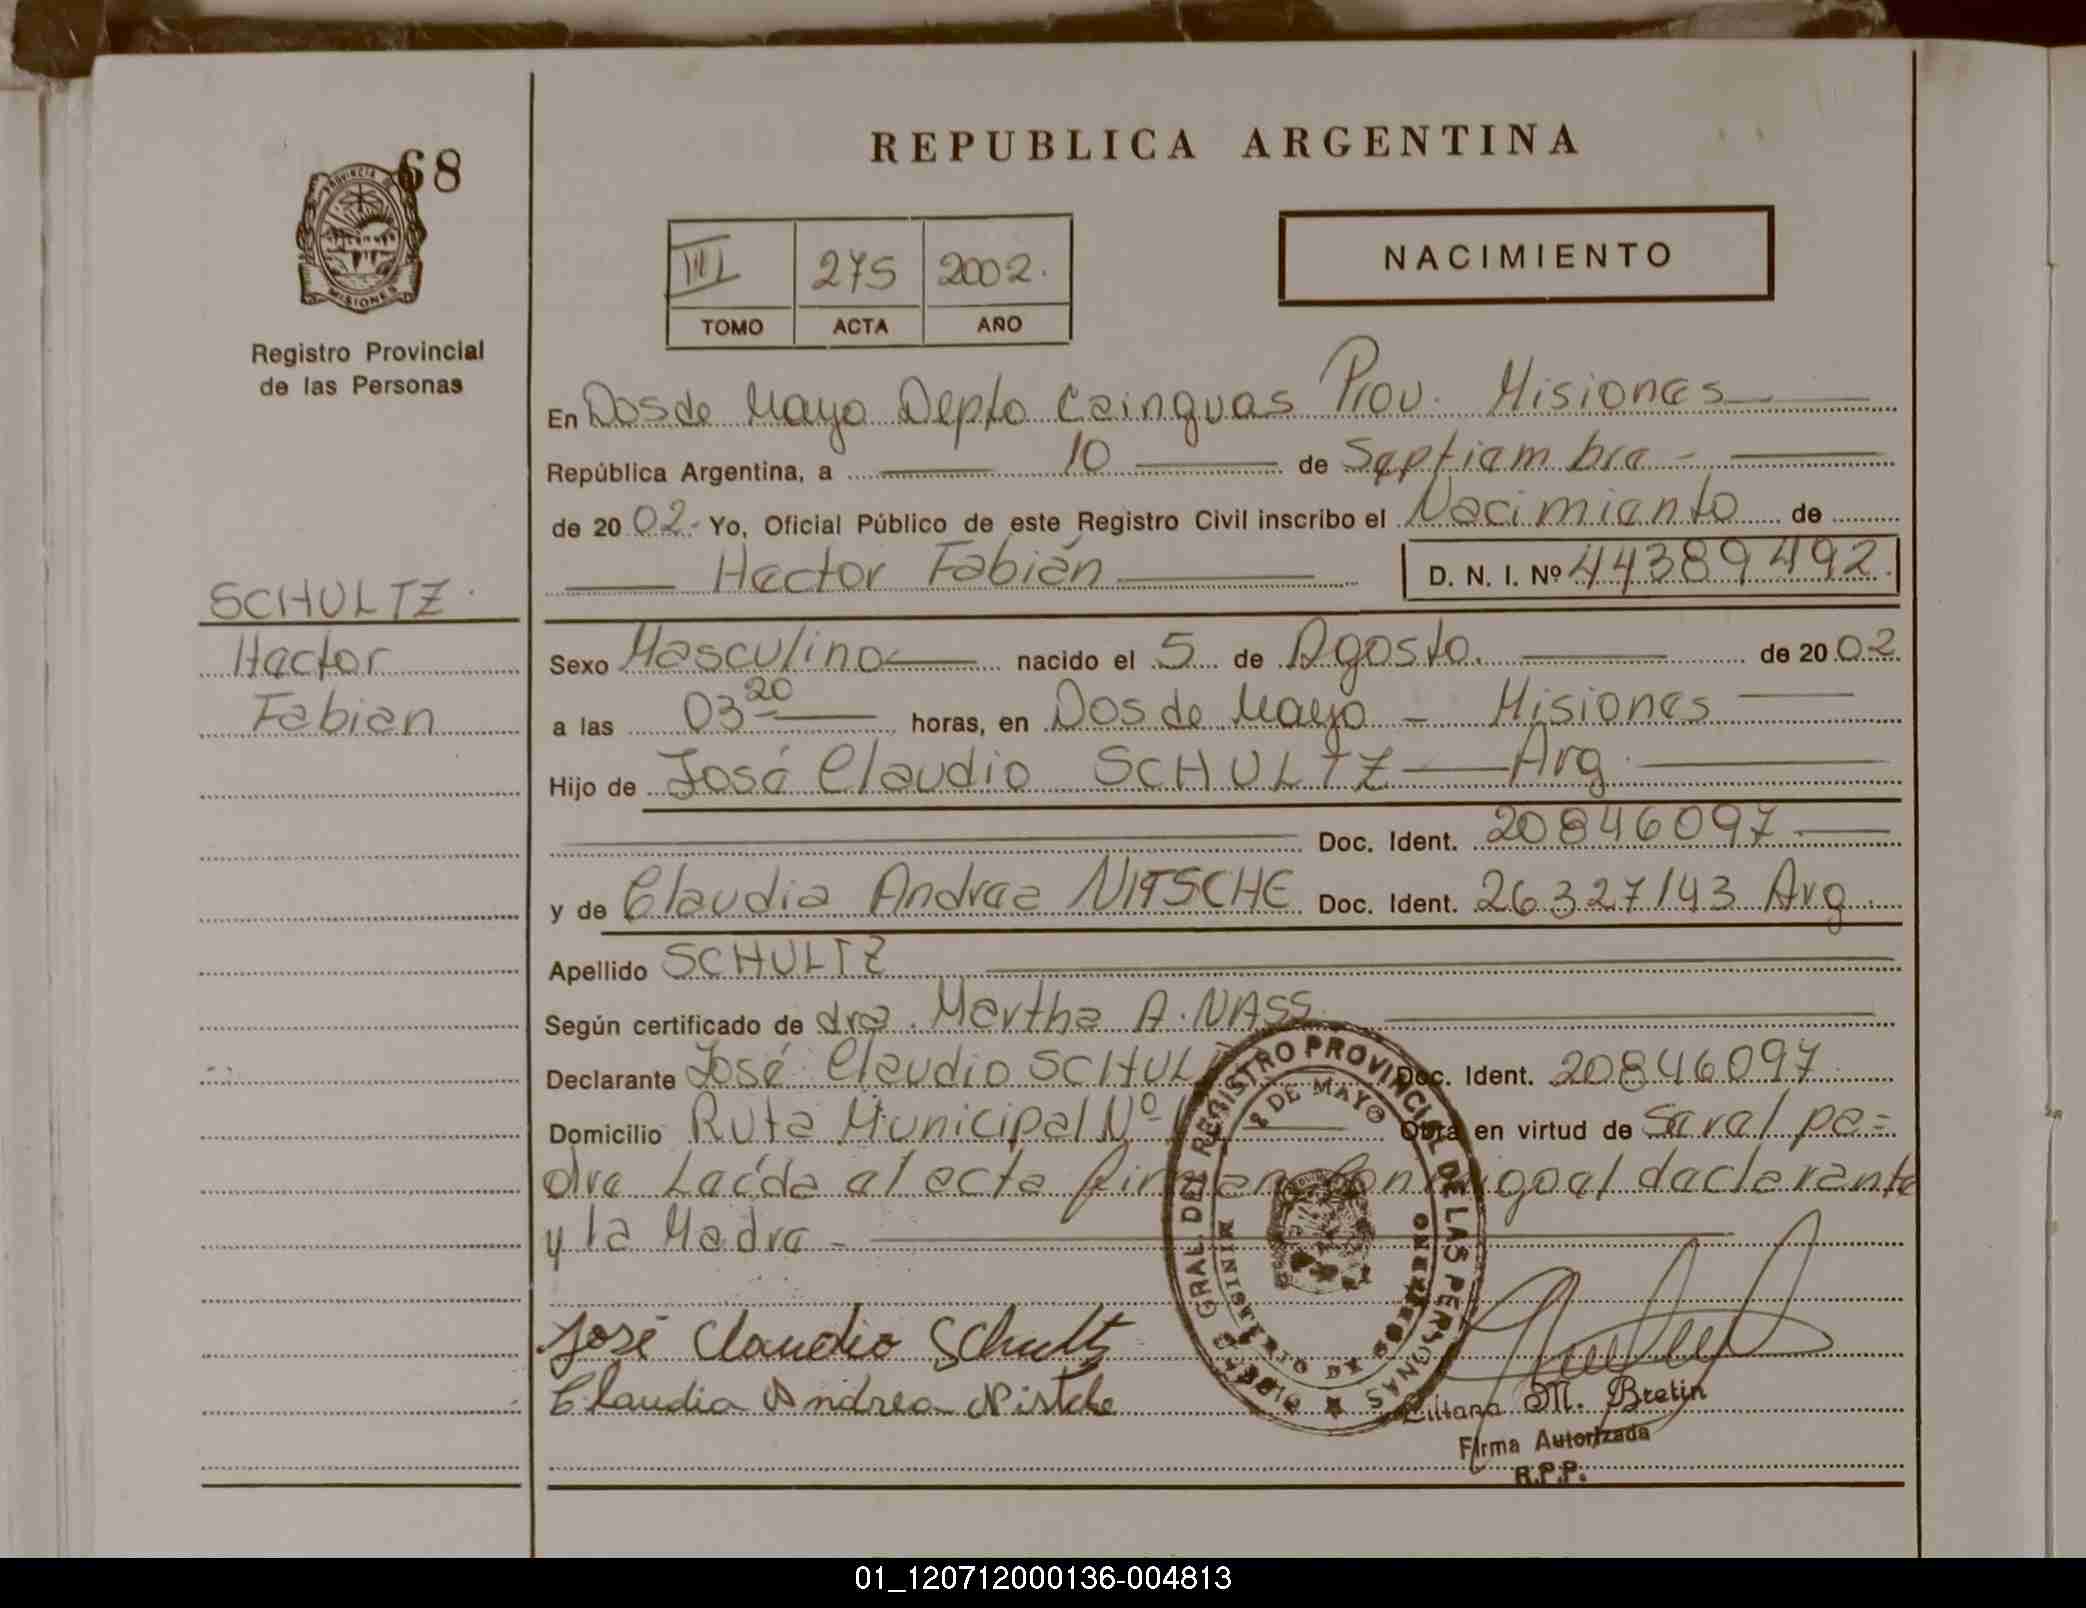 68
PROVINCIA DE
MISIONES
Registro Provincial
de las Personas
SCHULTZ
Hector
Fabian
REPUBLICA ARGENTINA
III 275 2002.
TOMO ACTA AÑO
NACIMIENTO
En Dos de Mayo Depto Cainguas Prov. Misiones
República Argentina, a 10 de Septiembre
de 2002. Yo, Oficial Público de este Registro Civil inscribo el Nacimiento de
Hector Fabián D. N. I. Nº 44389492.
Sexo Masculino nacido el 5 de Agosto. de 2002
a las 03 20 horas, en Dos de Mayo - Misiones
Hijo de José Claudio SCHULTZ Arg.
Doc. Ident. 20846097
y de Claudia Andrea NITSCHE Doc. Ident. 26327143 Arg.
Apellido SCHULTZ
Según certificado de dra. Martha A. NASS.
Declarante José Claudio SCHUL Doc. Ident. 20846097.
Domicilio Ruta Municipal Nº Obra en virtud de Ser el pa=
dre Leída el acta firman Conmigo el declarante
y la Madre -
José Claudio Schultz
Claudia Andrea Nistche
GRAL. DEL REGISTRO PROVINCIAL DE LAS PERSONAS
2 DE MAYO
Liliana M. Bretin
Firma Autorizada
R.P.P.
01_120712000136-004813